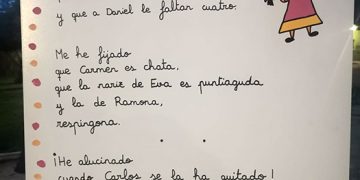 y que a Daniel le faltan cuatro.
Me he fijado
que Carmen es chata,
que la nariz de Eva es puntiaguda
y la de Ramona,
respingona.
¡He alucinado
cuando Carlos se la ha quitado!